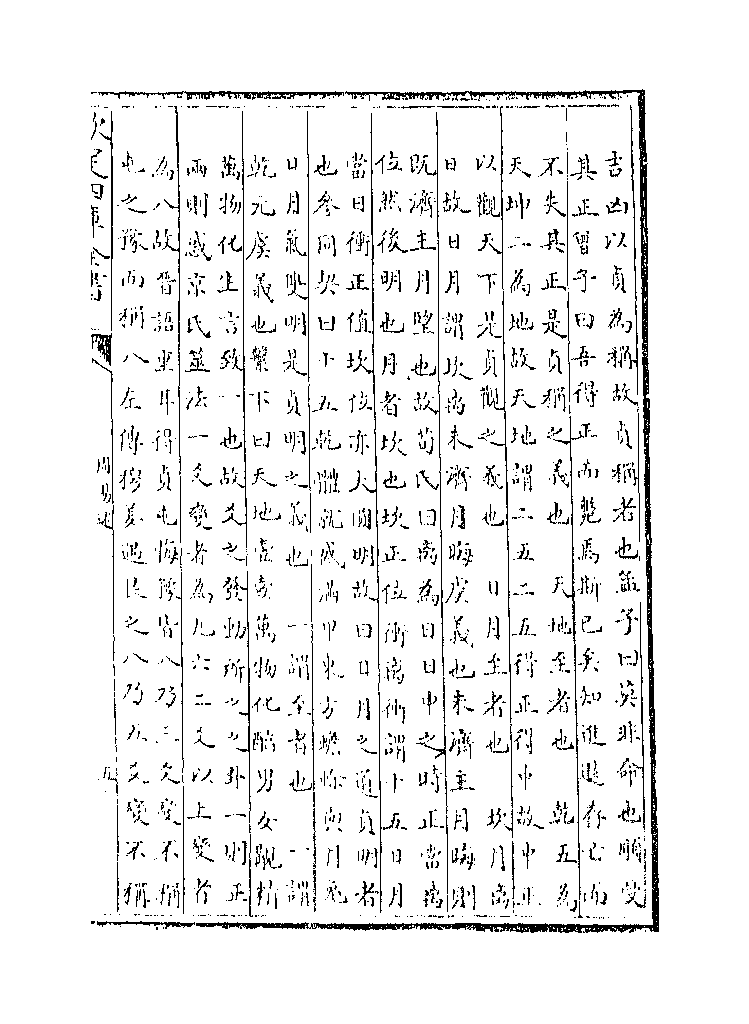 吉凶以貞為稱故貞稱者也孟子曰莫非命也順受
其正曾子曰吾得正而斃焉斯已矣知進退存亡而
不失其正是貞稱之義也　天地至者也　乾五為
天坤二為地故天地謂二五二五得正得中故中正
以觀天下是貞觀之義也　日月至者也　坎月离
日故日月謂坎离未濟月晦虞義也未濟主月晦則
既濟主月望也故荀氏曰离為日日中之時正當离
位然後明也月者坎也坎正位衝离衝謂十五日月
當日衝正值坎位亦大圓明故曰日月之道貞明者
也參同契曰十五乾體就盛滿甲東方蟾蜍與月兔
日月氣雙明是貞明之義也　一謂至者也　一謂
乾元虞義也繫下曰天地壹壺萬物化醇男女覯精
萬物化生言致一也故爻之發動所之之卦一則正
兩則惑京氏筮法一爻變者為九六二爻以上變者
為八故晉語重耳得貞屯悔豫皆八乃三爻變不稱
屯之豫而稱八左傳穆姜遇艮之八乃五爻變不稱
欽定四庫全書
周易述
五